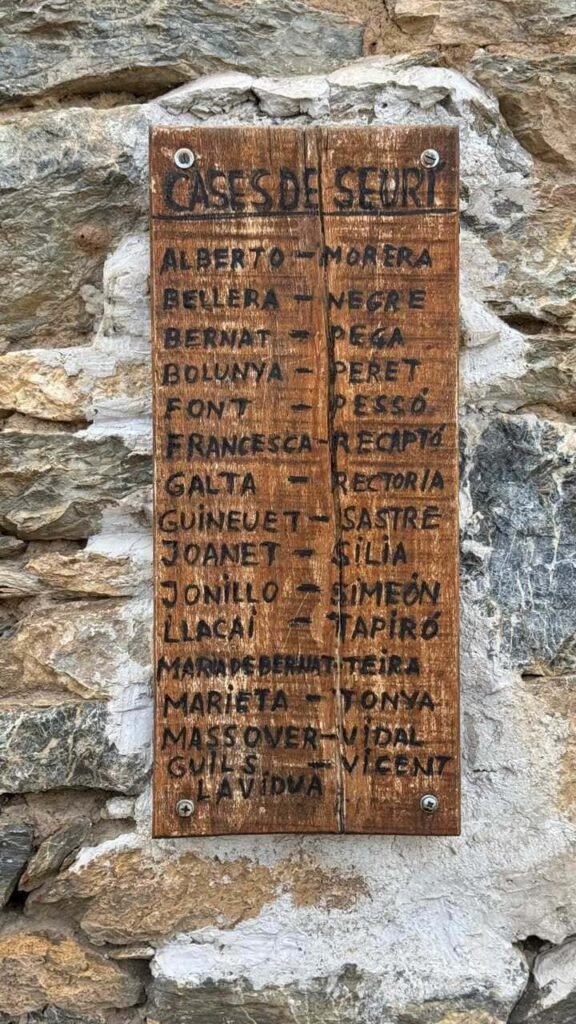 CASES DE SEURÍ
ALBERTO - MORERA
BELLERA - NEGRE
BERNAT - PEGA
BOLUNYA - PERET
FONT - PESSÓ
FRANCESCA - RECAPTÓ
GALTA - RECTORIA
GUINEUET - SASTRE
JOANET - SILIA
JONILLO - SIMEÓN
LLACAÍ - TAPIRÓ
MARIA DE BERNAT - TEIRA
MARIETA - TONYA
MASSOVER - VIDAL
GUILS - VICENT
LAVIDUA